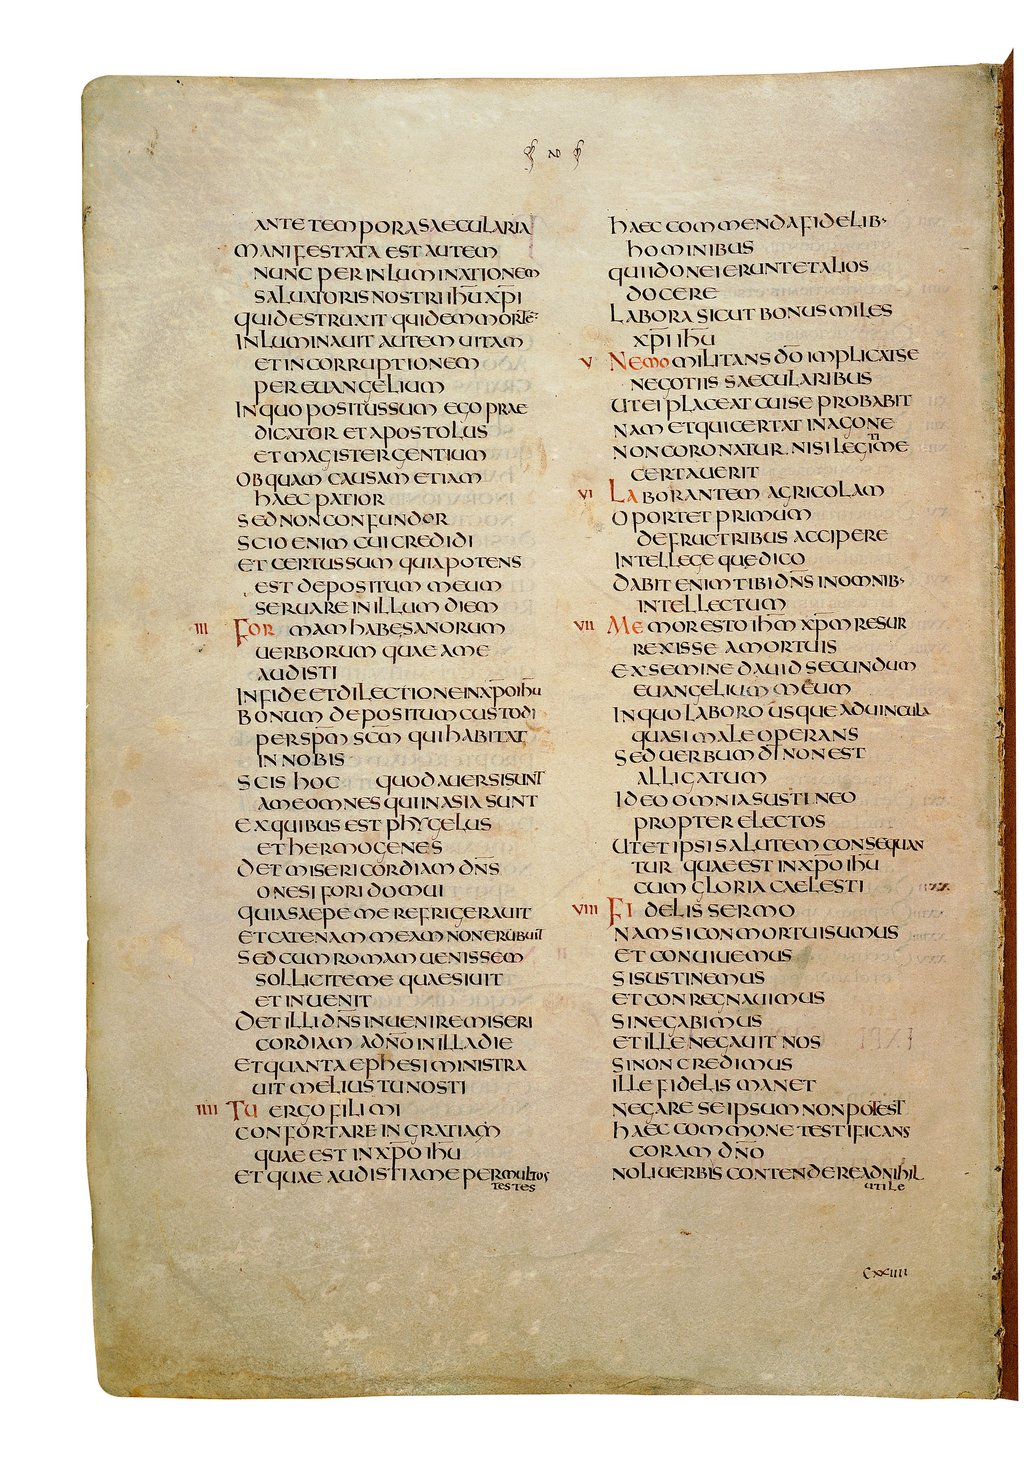 ANTE TEMPORA SAECULARIA
MANIFESTATA EST AUTEM
NUNC PER INLUMINATIONEM
SALUATORIS NOSTRI IHU XPI
QUI DESTRUXIT QUIDEM MORTE
INLUMINAUIT AUTEM UITAM
ET INCORRUPTIONEM
PER EUANGELIUM
IN QUO POSITUS SUM EGO PRAE
DICATOR ET APOSTOLUS
ET MAGISTER GENTIUM
OB QUAM CAUSAM ETIAM
HAEC PATIOR
SED NON CONFUNDOR
SCIO ENIM CUI CREDIDI
ET CERTUS SUM QUIA POTENS
EST DEPOSITUM MEUM
SERUARE IN ILLUM DIEM
III FORMAM HABE SANORUM
UERBORUM QUAE A ME
AUDISTI
IN FIDE ET DILECTIONE IN XPO IHU
BONUM DEPOSITUM CUSTODI
PER SPM SCM QUI HABITAT
IN NOBIS
SCIS HOC QUOD AUERSI SUNT
A ME OMNES QUI IN ASIA SUNT
EX QUIBUS EST PHYGELUS
ET HERMOGENES
DET MISERICORDIAM DNS
ONESIFORI DOMUI
QUIA SAEPE ME REFRIGERAUIT
ET CATENAM MEAM NON ERUBUIT
SED CUM ROMAM UENISSEM
SOLLICITE ME QUAESIUIT
ET INUENIT
DET ILLI DNS INUENIRE MISERI
CORDIAM A DNO IN ILLA DIE
ET QUANTA EPHESI MINISTRA
UIT MELIUS TU NOSTI
IIII TU ERGO FILI MI
CONFORTARE IN GRATIAM
QUAE EST IN XPO IHU
ET QUAE AUDISTI A ME PER MULTOS
TESTES
HAEC COMMENDA FIDELIB·
HOMINIBUS
QUI IDONEI ERUNT ET ALIOS
DOCERE
LABORA SICUT BONUS MILES
XPI IHU
V NEMO MILITANS DO IMPLICAT SE
NEGOTIIS SAECULARIBUS
UT EI PLACEAT CUI SE PROBABIT
NAM ET QUI CERTAT IN AGONE
NON CORONATUR NISI LEGITIME
CERTAUERIT
VI LABORANTEM AGRICOLAM
OPORTET PRIMUM
DE FRUCTRIBUS ACCIPERE
INTELLEGE QUE DICO
DABIT ENIM TIBI DNS IN OMNIB·
INTELLECTUM
VII MEMOR ESTO IHM XPM RESUR
REXISSE A MORTUIS
EX SEMINE DAUID SECUNDUM
EUANGELIUM MEUM
IN QUO LABORO USQUE AD UINCULA
QUASI MALE OPERANS
SED UERBUM DI NON EST
ALLIGATUM
IDEO OMNIA SUSTINEO
PROPTER ELECTOS
UT ET IPSI SALUTEM CONSEQUAN
TUR QUAE EST IN XPO IHU
CUM GLORIA CAELESTI
VIII FIDELIS SERMO
NAM SI CONMORTUI SUMUS
ET CONUIUEMUS
SI SUSTINEMUS
ET CONREGNAUIMUS
SI NEGABIMUS
ET ILLE NEGAUIT NOS
SI NON CREDIMUS
ILLE FIDELIS MANET
NEGARE SE IPSUM NON POTEST
HAEC COMMONE TESTIFICANS
CORAM DNO
NOLI UERBIS CONTENDERE AD NIHIL
UTILE
CXXIIII